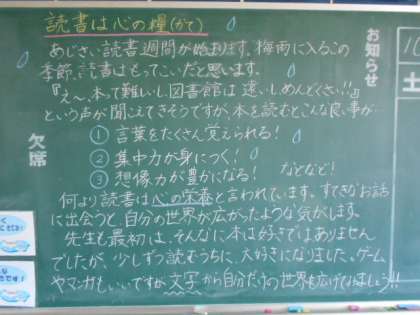 読書は心の糧(かて)
あじさい読書週間が始まります。梅雨に入るこの
季節、読書はもってこいだと思います。
『え〜、本って難いし図書館は遠いしめんどくさい!!』
という声が聞こえてきそうですが、本を読むとこんな良い事が…
① 言葉をたくさん覚えられる!
② 集中力が身につく!
③ 想像力が豊かになる! などなど!
何より読書は心の栄養と言われています。すてきなお話
に出会うと、自分の世界が広がったような気がします。
先生も最初は、そんなに本は好きではありません
でしたが、少しずつ読むうちに、大好きになりました。ゲーム
やマンガもいいですが文字から自分だけの世界を広げてみましょう!!
欠席
お知らせ
土